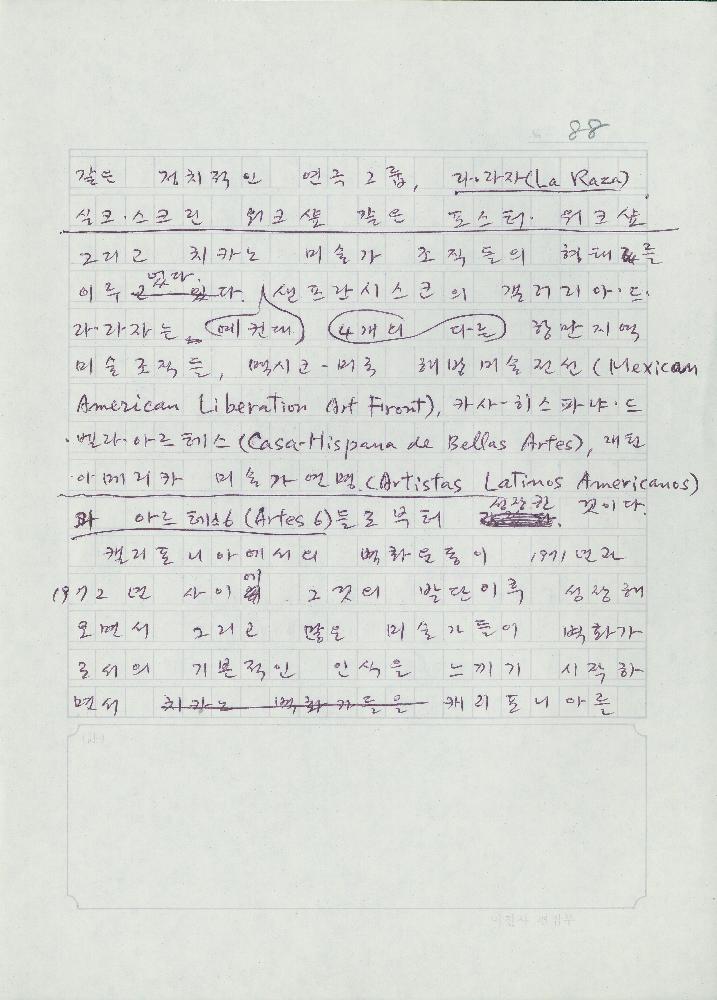 88
같은 정치적인 연극그룹, 라·라자(La Raza)
실크·스크린 워크샾 같은 포스터·워크샾
그리고 치카노 미술가 조직들의 형태를
이루었다. 샌프란시스코의 갤러리아·드·
라·라자는, 예컨대 4개의 다른 항만지역
미술조직들, 멕시코-미국 해방미술전선 (Mexican
American Liberation Art Front), 카사-히스파냐·드
·벨라·아르테스 (Casa-Hispana de Bellas Artes), 래틴
·아메리카 미술가연맹 (Artistas Latinos Americanos)
과 아르테스6 (Artes 6)들로부터 성장한 것이다.
캘리포니아에서의 벽화운동이 1971년과
1972년 사이에 그것의 발단이후 성장해
오면서 그리고 많은 미술가들이 벽화가
로서의 기본적인 인식을 느끼기 시작하
면서 치카노 벽화가들을 캐리포니아를